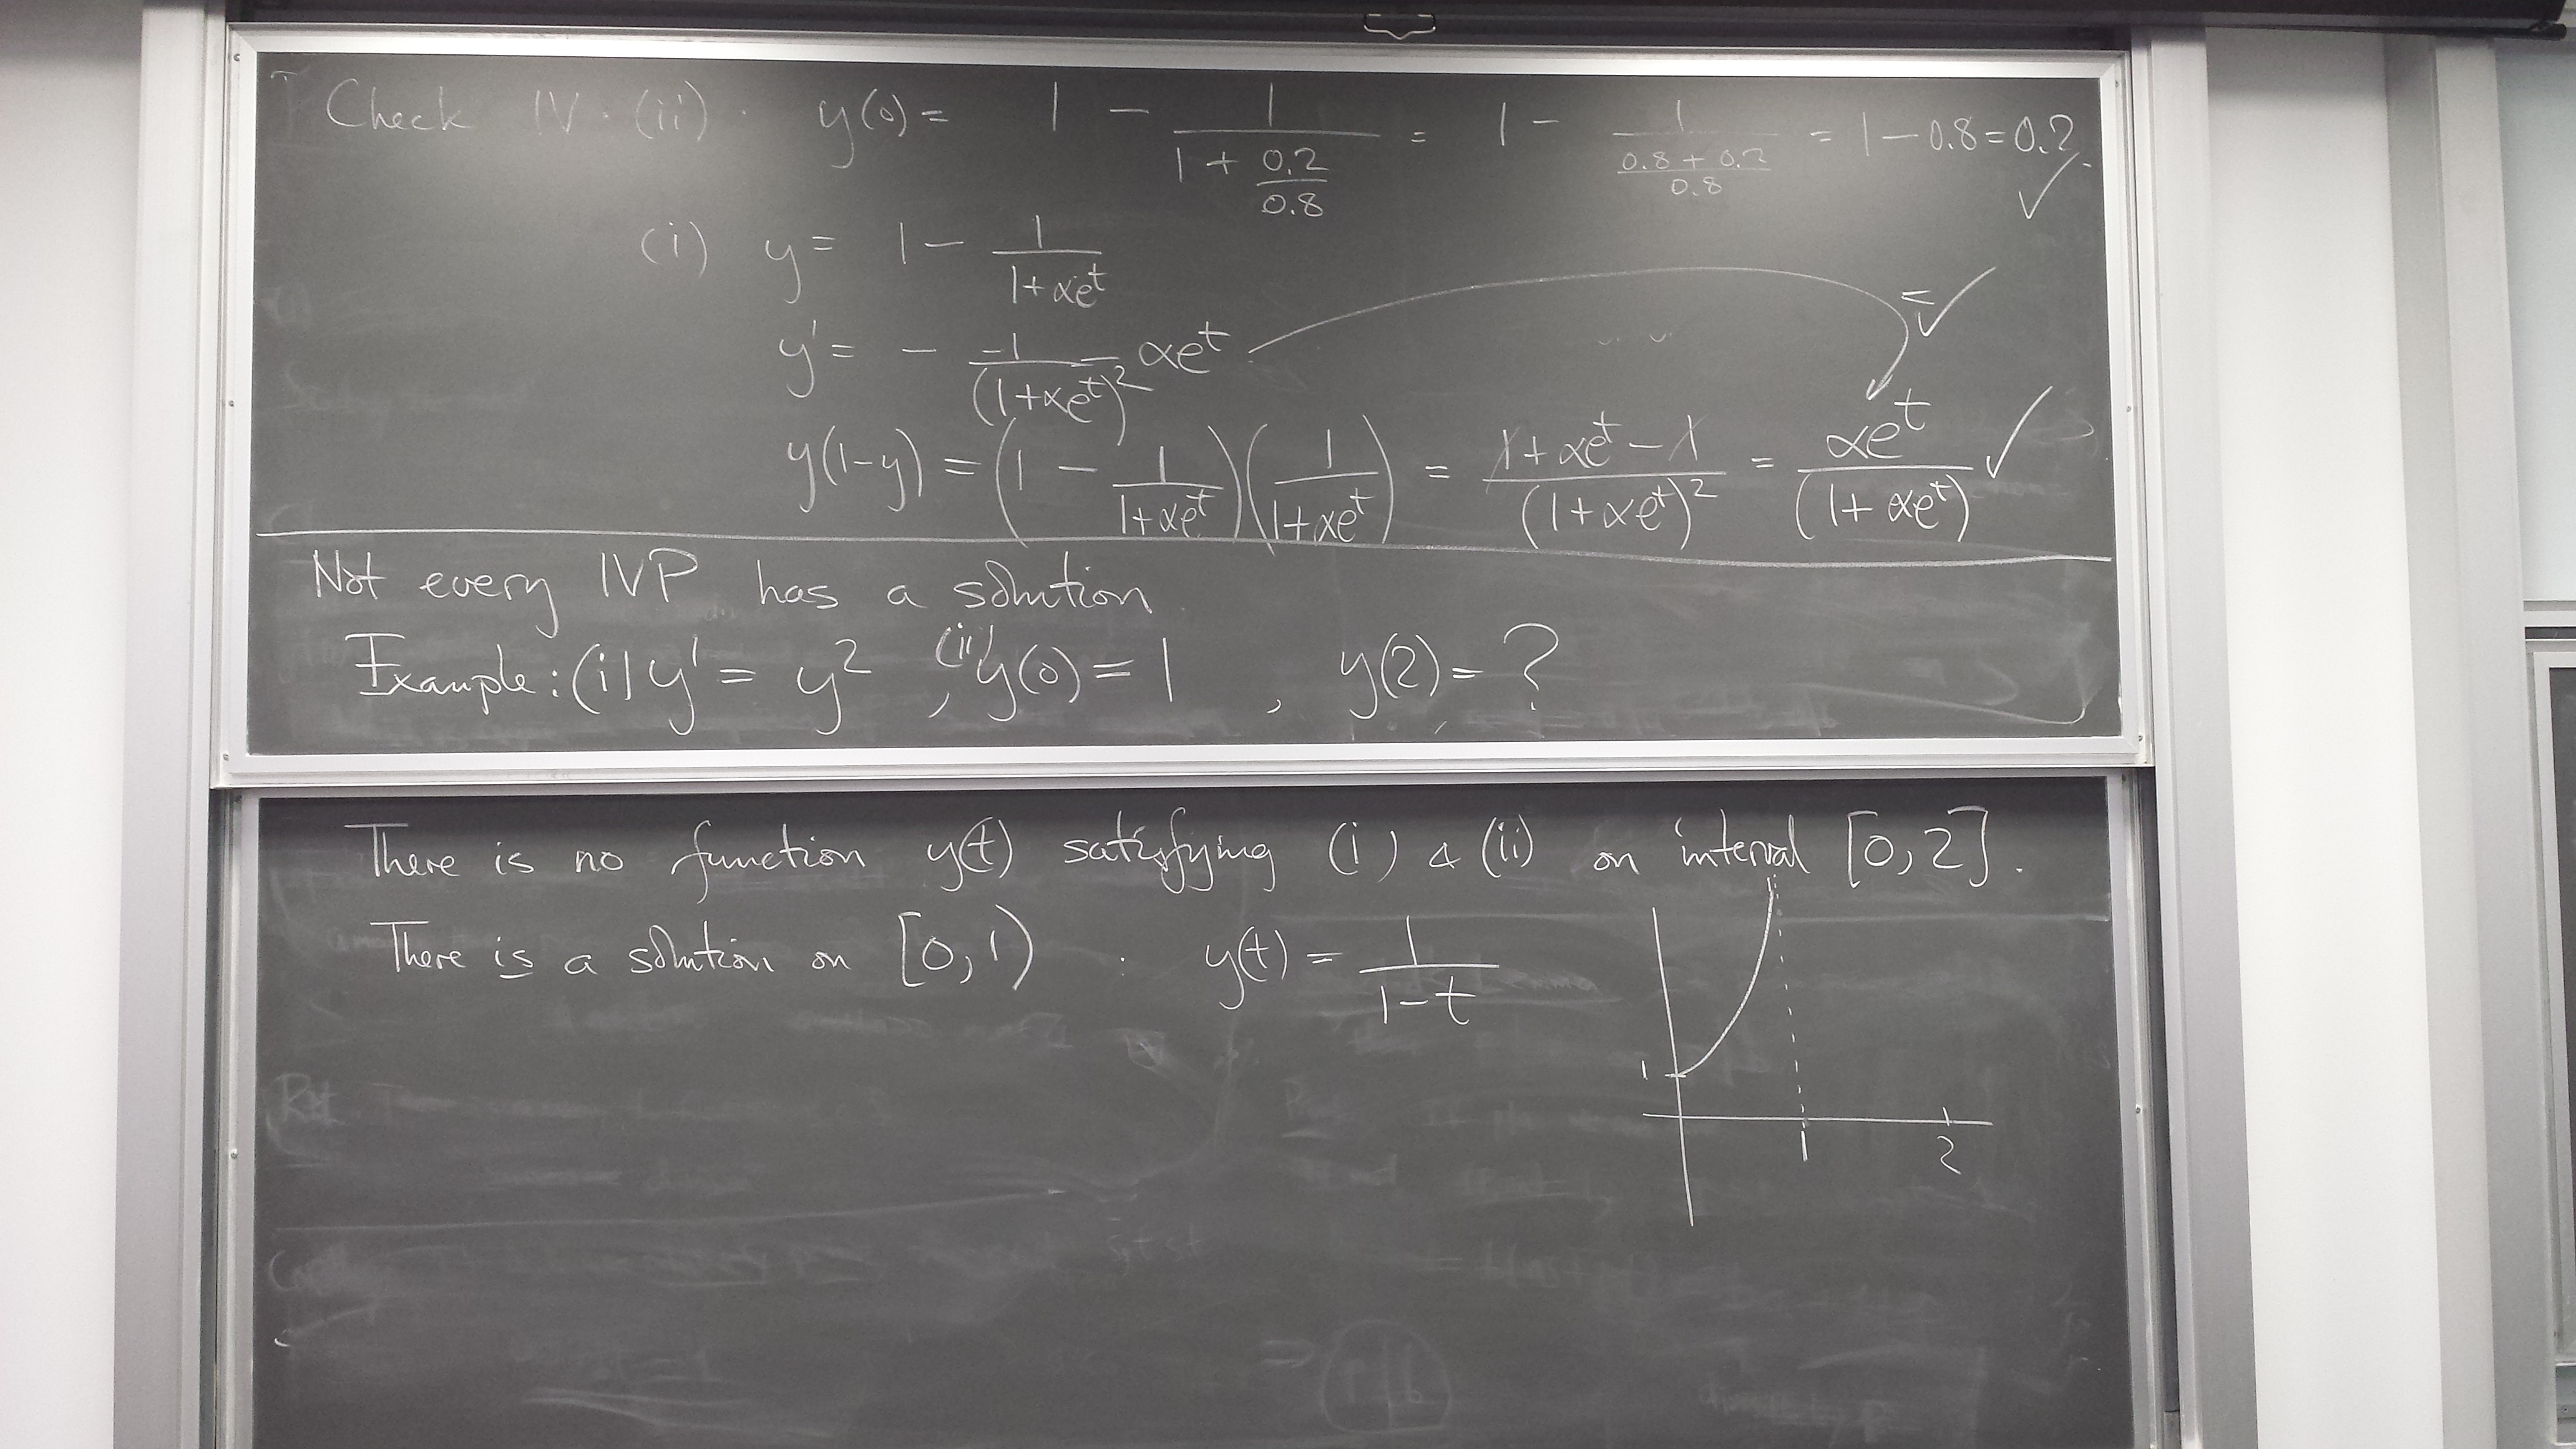 Check IV. (ii). y(0) = 1 - 1/(1 + 0.2/0.8) = 1 - 1/((0.8 + 0.2)/0.8) = 1 - 0.8 = 0.2. ✓
(i) y = 1 - 1/(1+αe^t)
= ✓
y' = - -1/(1+αe^t)^2 αe^t
y(1-y) = (1 - 1/(1+αe^t))(1/(1+αe^t)) = (1+αe^t-1)/(1+αe^t)^2 = αe^t/(1+αe^t) ✓
Not every IVP has a solution
Example: (i) y' = y^2, (ii) y(0) = 1, y(2) = ?
There is no function y(t) satisfying (i) & (ii) on interval [0,2].
There is a solution on [0,1) : y(t) = 1/(1-t)
1
1
2